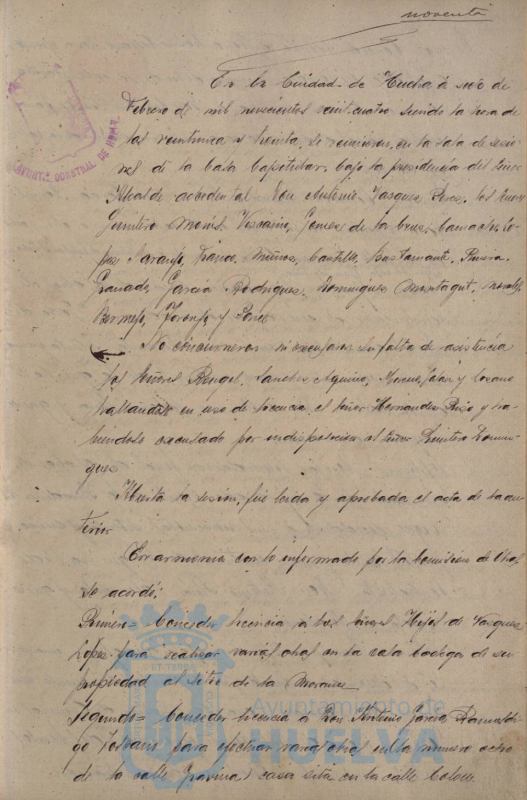 noventa
En la Ciudad de Huelva á seis de
Febrero de mil novecientos veinticuatro siendo la hora de
las veintiuna y treinta, se reunieron, en la sala de sesio
nes de la Casa Capitular, bajo la presidencia del Señor
Alcalde accidental Don Antonio Vazquez Perez, los Señores
Quintero Monis, Vizcaino, Gomez de la Cruz, Camacho, Lo
pez Naranjo, Franco, Muñoz, Castillo, Bustamante, Rivera,
Granado, Garcia Rodriguez, Dominguez Montagut, Morales,
Bermejo, Toronjo y Ponce
No concurrieron ni excusaron su falta de asistencia
los Señores Rengel, Sanchez Aquino, y Lozano
hallandose en uso de licencia el Señor Hernandez Pinzo y ha
biendose excusado por indisposicion el Señor Quintero Domin
guez
Abierta la sesión, fue leida y aprobada el acta de la an
terior
En armonia con lo informado por la Comision de Obras
se acordó:
Primero = Conceder licencia á los Señores Hijos de Vazquez
Lopez para realizar varias obras en la casa bodega de su
propiedad al sitio de la Morana
Segundo = Conceder licencia á Don Antonio Garcia
para efectuar varias obras en la numero ocho
de la calle Gravina, casa sita en la calle Colon
AYUNTº CONSTNAL DE
Ayuntamiento de
HUELVA